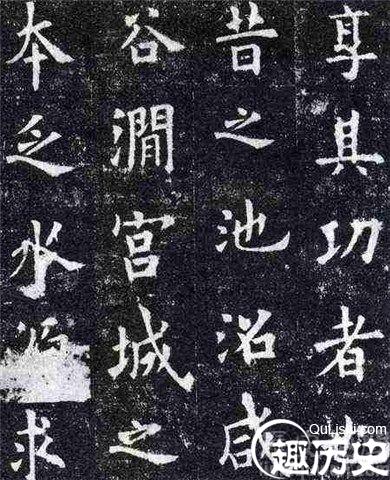 享其功者
昔之池沼咸
谷澗宮城之
本乏水求
QuLishi.com
趣历史